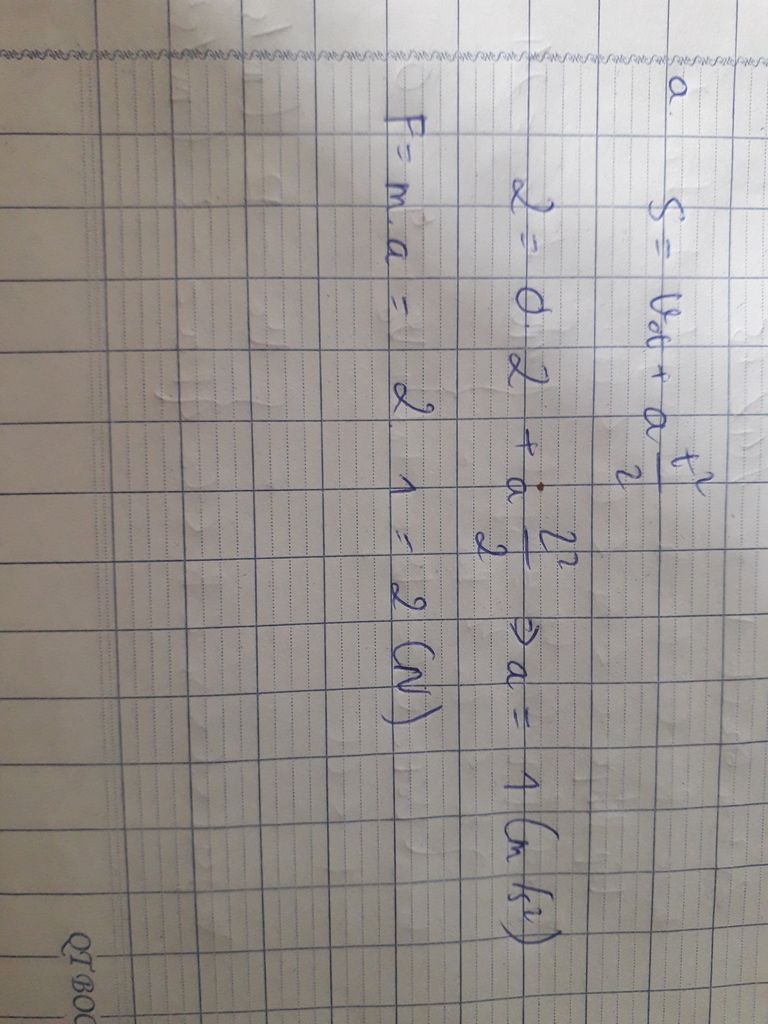 a. S = v₀t + a t²/2
2 = 0.2 + a 2²/2 ⇒ a = 1 (m/s²)
F = m.a = 2.1 = 2 (N)